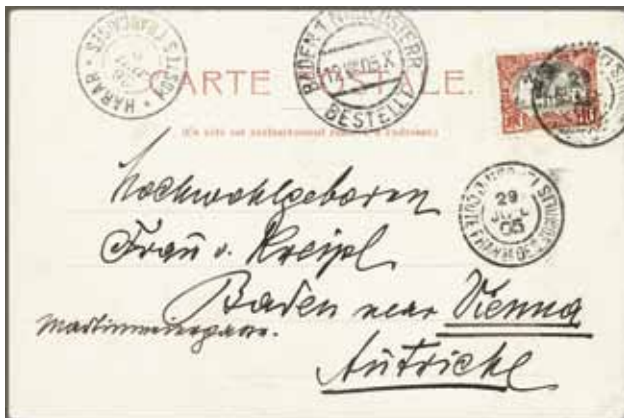 POSTES FRANCAISES HARAR
BADEN 1 NIED. ÖSTERR.
12 VIII 05 X
BESTELLT
CARTE POSTALE.
(Ce côté est exclusivement réservé à l'adresse)
29
05
Hochwohlgeboren
Frau v. Kreipl
Baden near Vienna
Autriche